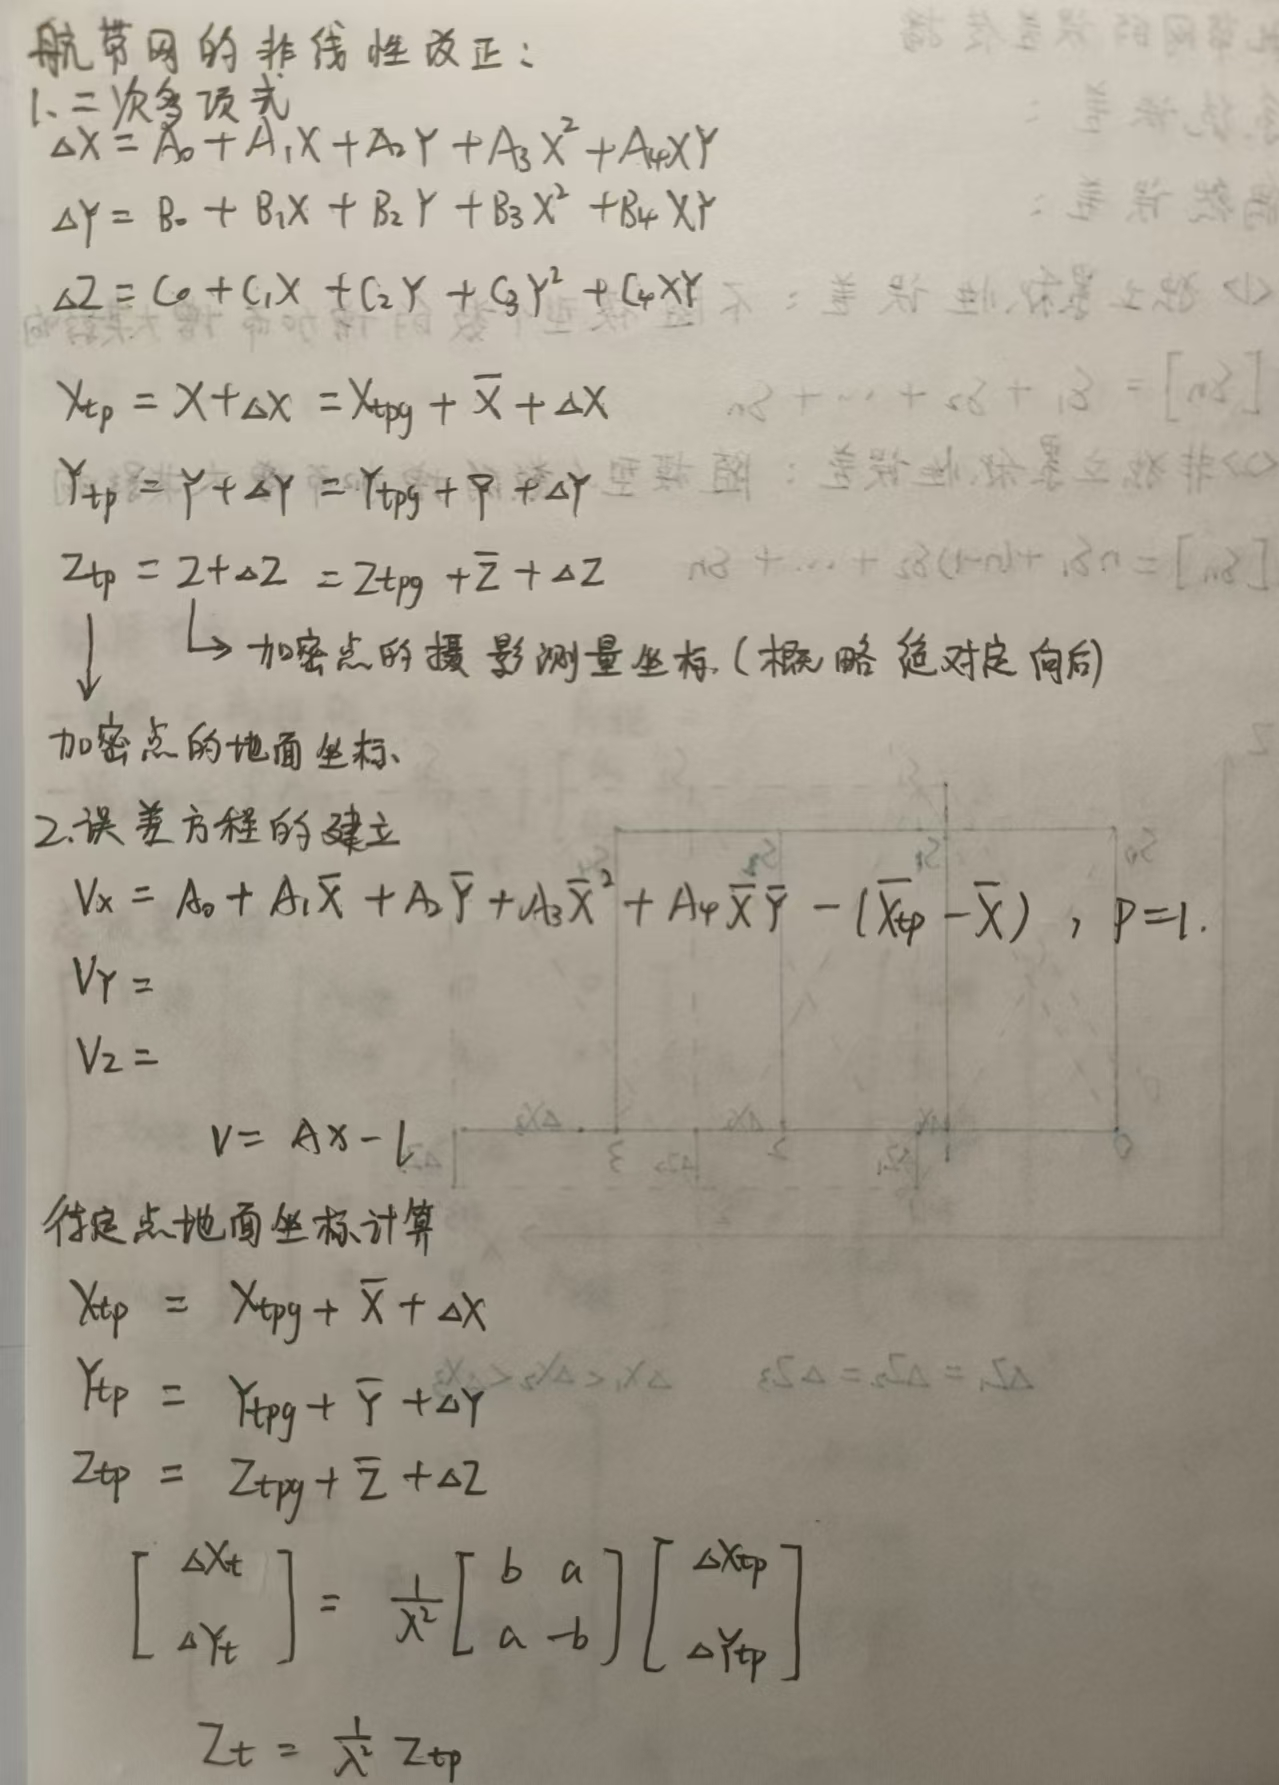 航带网的非线性改正：
1、二次多项式
ΔX = A₀ + A₁X + A₂Y + A₃X² + A₄XY
ΔY = B₀ + B₁X + B₂Y + B₃X² + B₄XY
ΔZ = C₀ + C₁X + C₂Y + C₃Y² + C₄XY
Xtp = X + ΔX = Xtpg + X̄ + ΔX
Ytp = Y + ΔY = Ytpg + Ȳ + ΔY
Ztp = Z + ΔZ = Ztpg + Z̄ + ΔZ
↓ ↳ 加密点的摄影测量坐标（概略绝对定向后）
加密点的地面坐标、
2.误差方程的建立
Vx = A₀ + A₁X̄ + A₂Ȳ + A₃X̄² + A₄X̄Ȳ - (X̄tp - X̄) , P=1.
VY =
Vz =
V = AX - L
待定点地面坐标计算
Xtp = Xtpg + X̄ + ΔX
Ytp = Ytpg + Ȳ + ΔY
Ztp = Ztpg + Z̄ + ΔZ
[ΔXt ΔYt] = 1/λ² [b a a -b] [ΔXtp ΔYtp]
Zt = 1/λ² Ztp